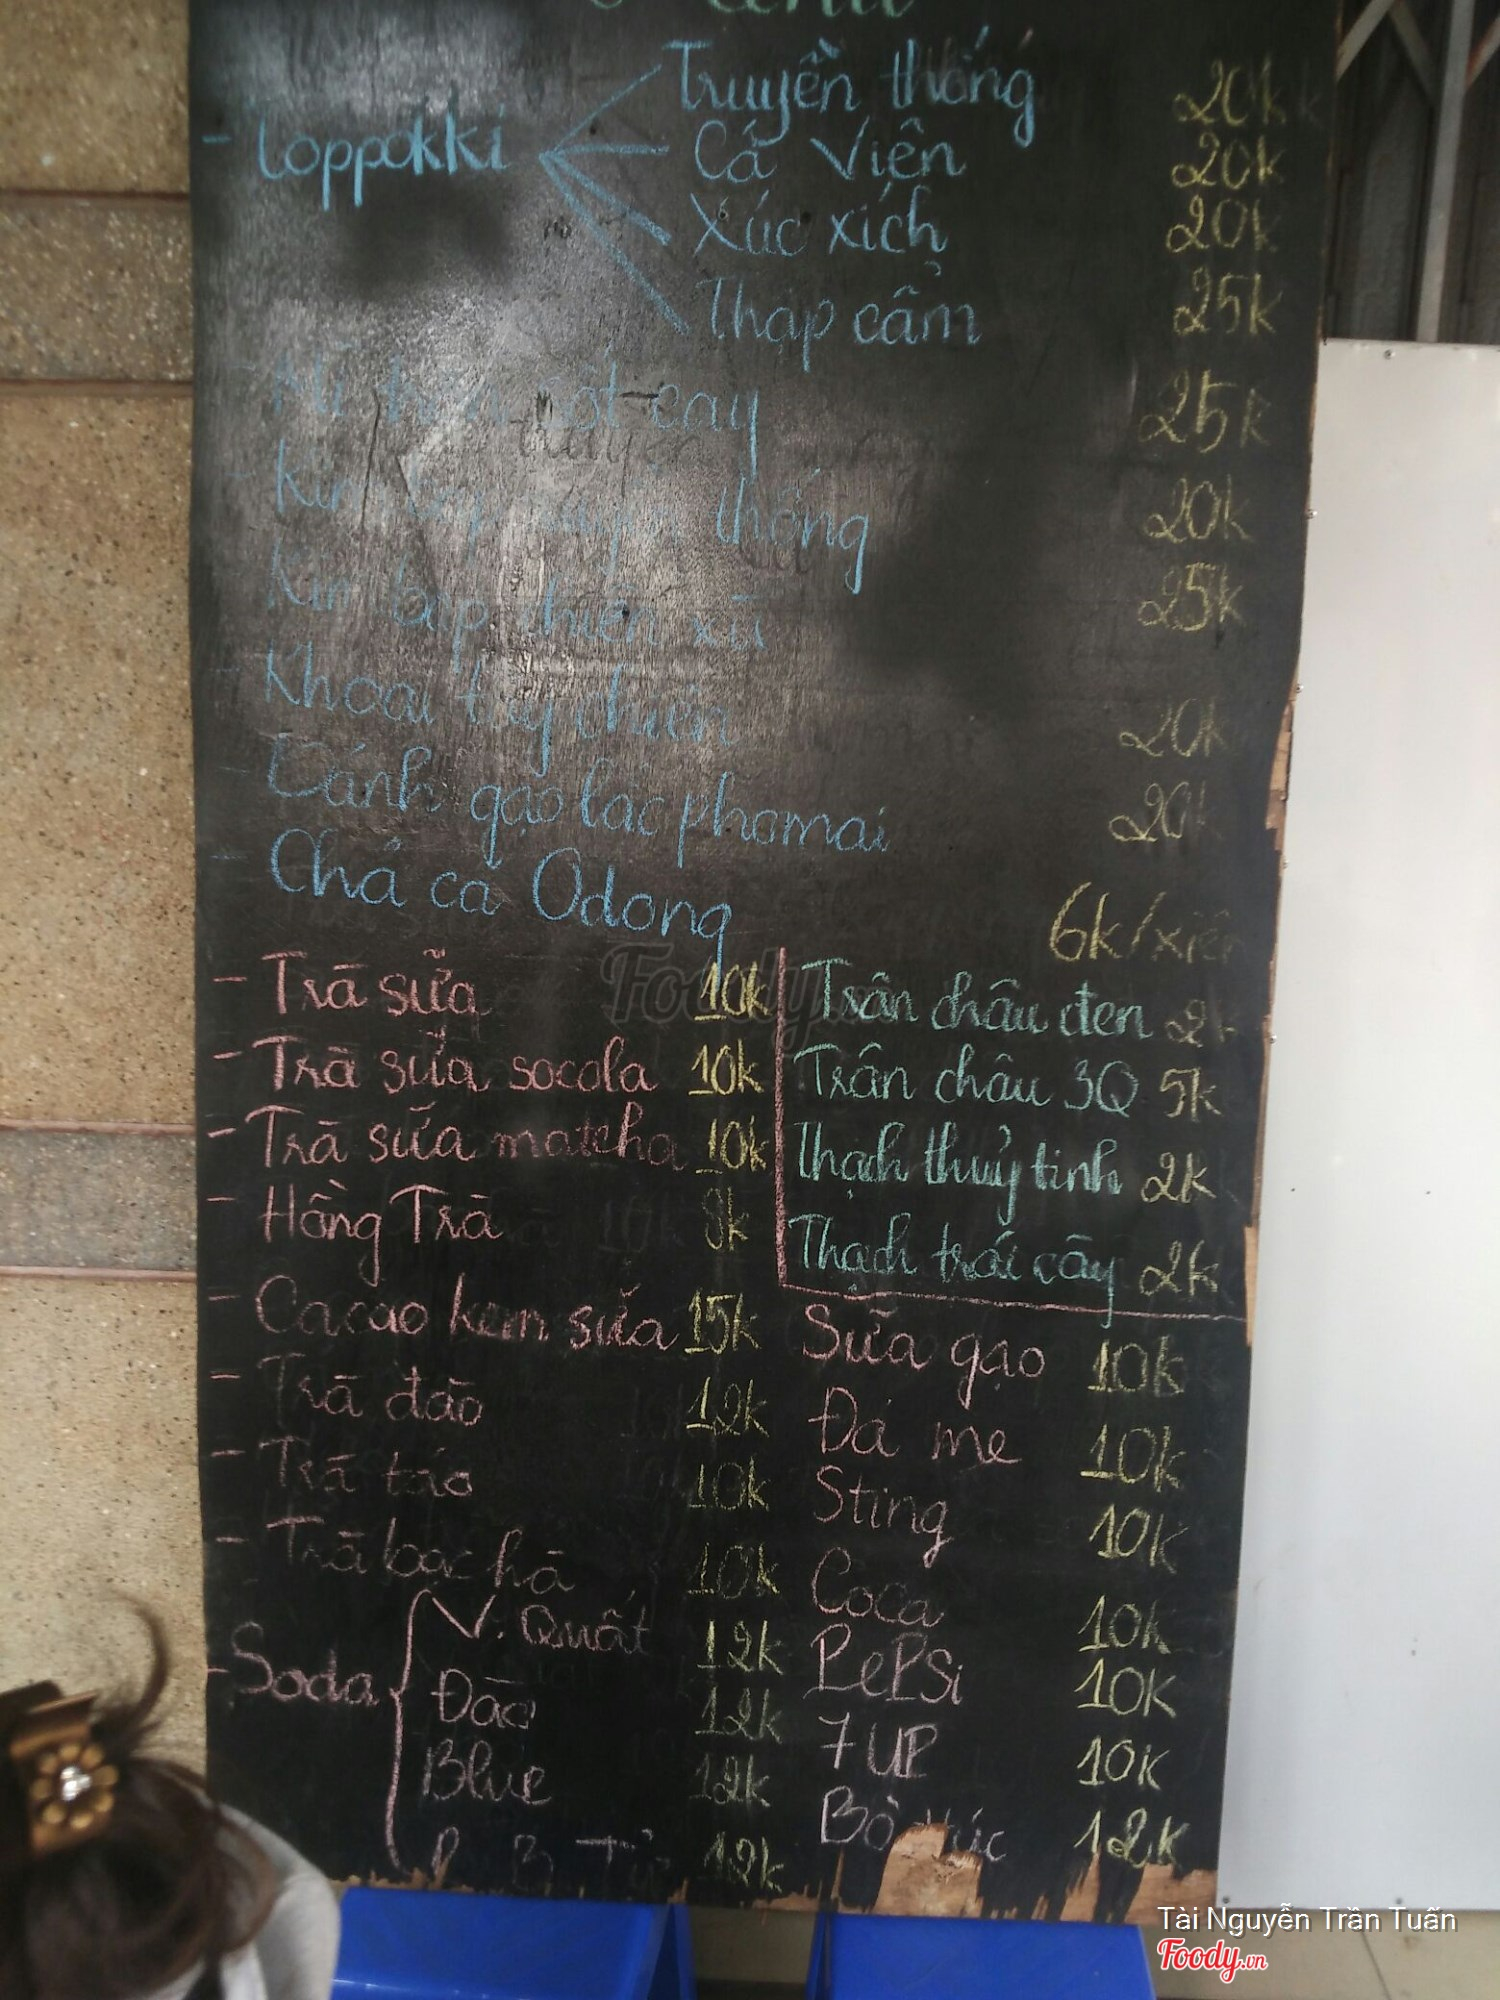 - Toppokki
Truyền thống 20k
Cá Viên 20k
Xúc xích 20k
Thập cẩm 25k
cay 25k
- Kim thống 20k
- Kim bắp chiên xù 25k
- Khoai tây chiên 20k
- Bánh gạo lắc phomai 20k
- Chả cá Odong 6k/xiên
- Trà sữa 10k
- Trà sữa socola 10k
- Trà sữa matcha 10k
- Hồng Trà 8k
- Cacao kem sữa 15k
- Trà đào 12k
- Trà táo 10k
- Trà bạc hà 10k
- Soda
V. Quất 12k
Đào 12k
Blue 12k
12k
Trân châu đen 2k
Trân châu 3Q 5k
Thạch thuỷ tinh 2k
Thạch trái cây 2k
Sữa gạo 10k
Đá me 10k
Sting 10k
Coca 10k
PePSi 10K
7 UP 10K
Bò 12K
Foody
Tài Nguyễn Trần Tuấn
Foody.vn